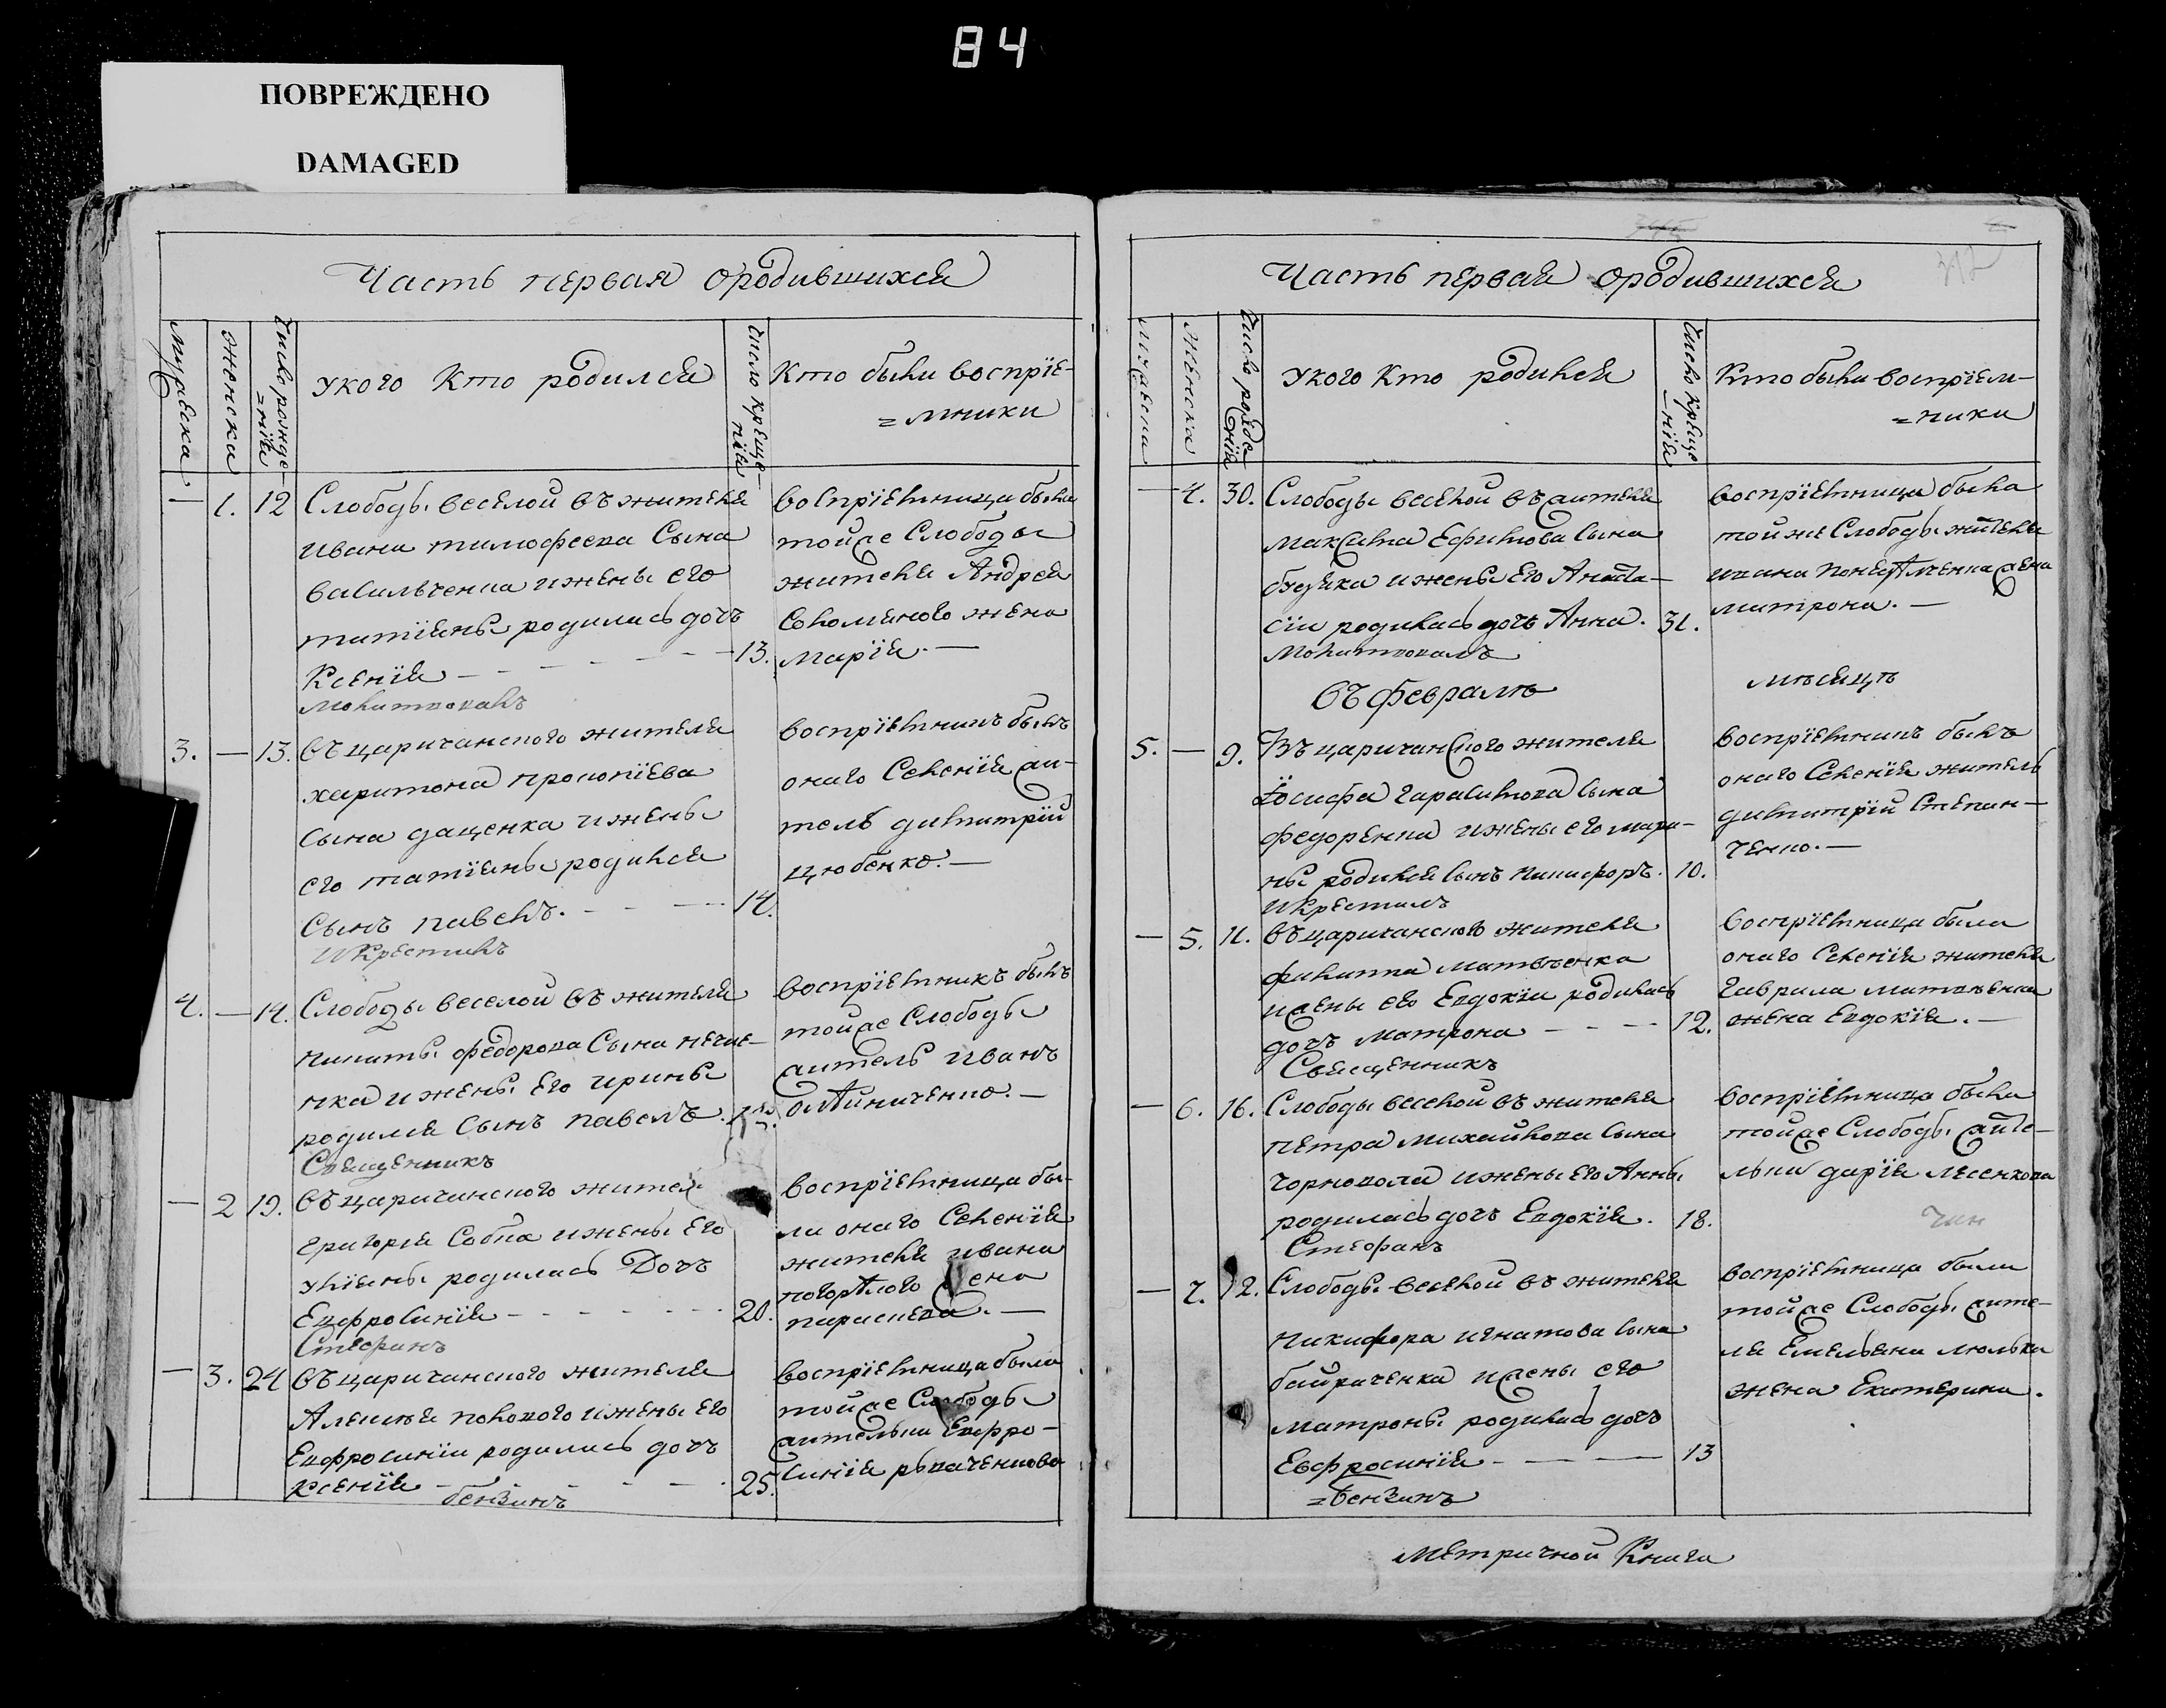 84
ПОВРЕЖДЕНО
DAMAGED
Часть первая о родившихся
мужеска
женска
Число рожде-
=нія
У кого Кто родился
Число креще-
нія
Кто были воспріе-
=мники
1. 12 Слободы веселой въ жителя
Ивана тимофеева Сына
васильченка и жены его
татіяны родилась дочь
Ксенія 13.
Молитвовалъ
воспріемница была
тойже Слободы
жителя Андрея
Соломяного жена
Марія.
3. — 13. Въ царичанского жителя
харитона прокопіева
Сына даценка и жены
его татіяны родился
Сынъ павелъ. 14.
И Крестилъ
воспріемникъ былъ
онаго Селенія жи-
тель димитрій
цюбенко.
4. — 14. Слободы веселой въ жителя
никиты федорова Сына
и жены его ирины
родился Сынъ павелъ. 15.
Священникъ
воспріемникъ былъ
тойже Слободы
житель иванъ
— 2 19. Въ царичанского жителя
григорія Собка и жены его
уліяны родилась Дочь
Евфросинія 20.
Стефанъ
воспріемница бы-
ла онаго Селенія
жителя ивана
погорѣлого жена
параскева.
— 3. 24 Въ царичанского жителя
Алексѣя полового и жены его
Евфросиніи родилась дочь
Ксенія 25.
бензинъ
воспріемница была
тойже Слободы
жителька Евфро-
синія
Часть первая о родившихся
мужеска
женска
Число рожде-
нія
У кого Кто родился
Число креще
=нія
Кто были воспріем-
=ники
— 4. 30. Слободы веселой въ жителя
максима Ефимова Сына
и жены Его Анаста-
сіи родилась дочь Анна. 31.
Молитвовалъ
воспріемница была
тойже Слободы жителя
ивана жена
матрона.
въ февралѣ
мѣсяцѣ
5. — 9. Въ царичанского жителя
Іосифа гарасимова Сына
федоренка и жены его мари-
ны родился Сынъ никифоръ. 10.
И Крестилъ
воспріемникъ былъ
онаго Селенія житель
димитрій Степан-
ченко.
— 5. 11. Въ царичанского жителя
филиппа матвѣенка
и жены его Евдокіи родилась
дочь матрона 12.
Священникъ
воспріемница была
онаго Селенія жителя
гаврила матвѣенка
жена Евдокія.
— 6. 16. Слободы веселой въ жителя
петра михайлова Сына
чорновола и жены Его Анны
родилась дочь Евдокія. 18.
Стефанъ
воспріемница была
тойже Слободы жите-
лька дарія лисенкова
— 7. 12. Слободы веселой въ жителя
никифора игнатова Сына
байраченка и жены его
матроны родилась дочь
Евфросинія 13
=бензинъ
воспріемница была
тойже Слободы жите-
ля Емельяна люльки
жена Екатерина.
Метричной Книги